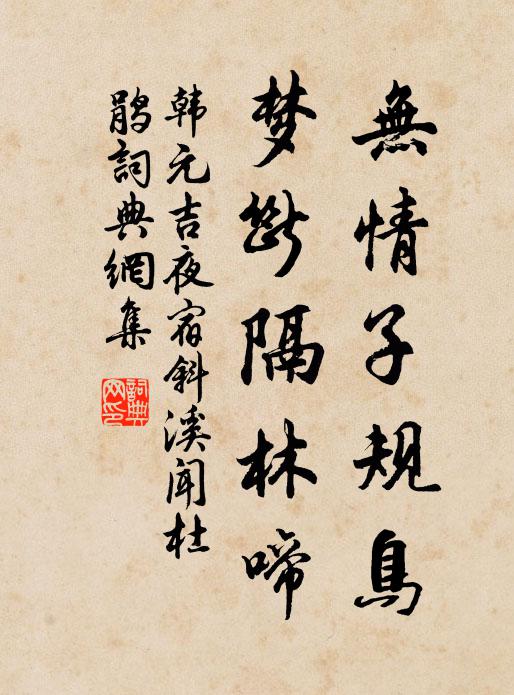 無情子規鳥
梦斷隔林啼
韩元吉夜宿斜溪聞杜
鹃詞典網集
詞典
网印